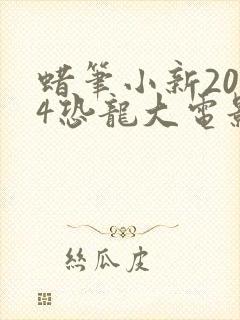 蜡筆小新20
4恐龍大電影
絲瓜皮